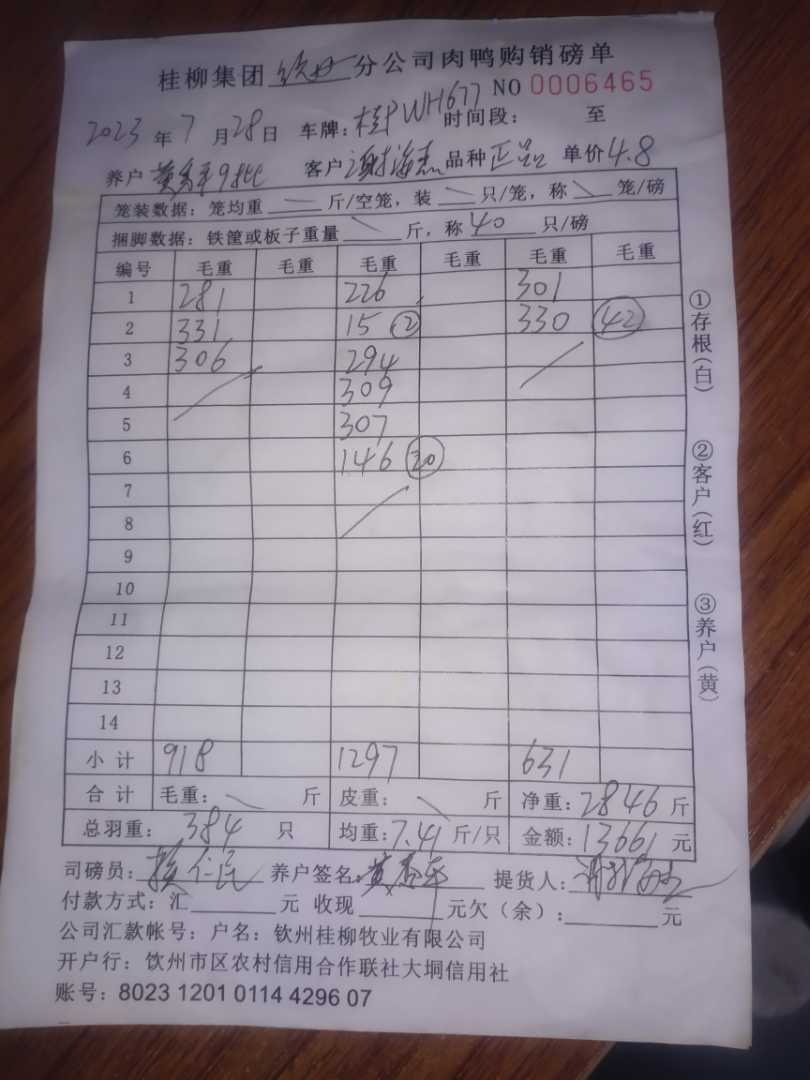 桂柳集团钦州分公司肉鸭购销磅单
NO 0006465
2023年7月28日 车牌:桂PWH677 时间段: 至
养户 9批 客户谢海杰 品种正品 单价4.8
笼装数据:笼均重 斤/空笼,装 只/笼,称 笼/磅
捆脚数据:铁筐或板子重量 斤,称40只/磅
编号 毛重 毛重 毛重 毛重 毛重 毛重
1 281 226 301
2 331 15 ② 330 42
3 306 294
4 309
5 307
6 146 20
7
8
9
10
11
12
13
14
小计 918 1297 631
合计 毛重: 斤 皮重: 斤 净重:2846斤
总羽重:384只 均重:7.41斤/只 金额:13661元
司磅员:赖仁民 养户签名: 提货人:
付款方式:汇 元 收现 元欠(余): 元
公司汇款帐号:户名:钦州桂柳牧业有限公司
开户行:钦州市区农村信用合作联社大垌信用社
账号:8023 1201 0114 4296 07
①存根(白)
②客户(红)
③养户(黄)